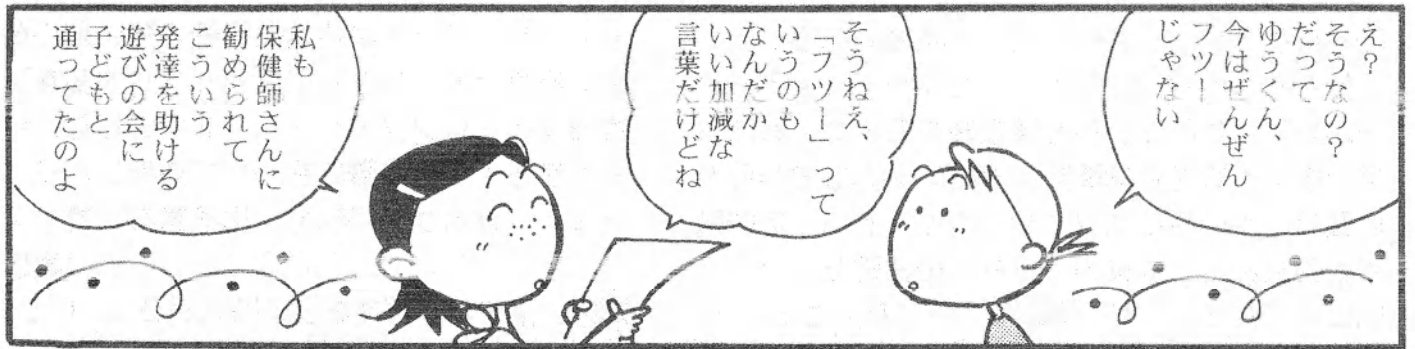 え？
そうなの？
だって
ゆうくん、
今はぜんぜん
フツー
じゃない
そうねえ、
「フツー」って
いうのも
なんだか
いい加減な
言葉だけどね
私も
保健師さんに
勧められて
こういう
発達を助ける
遊びの会に
子どもと
通ってたのよ